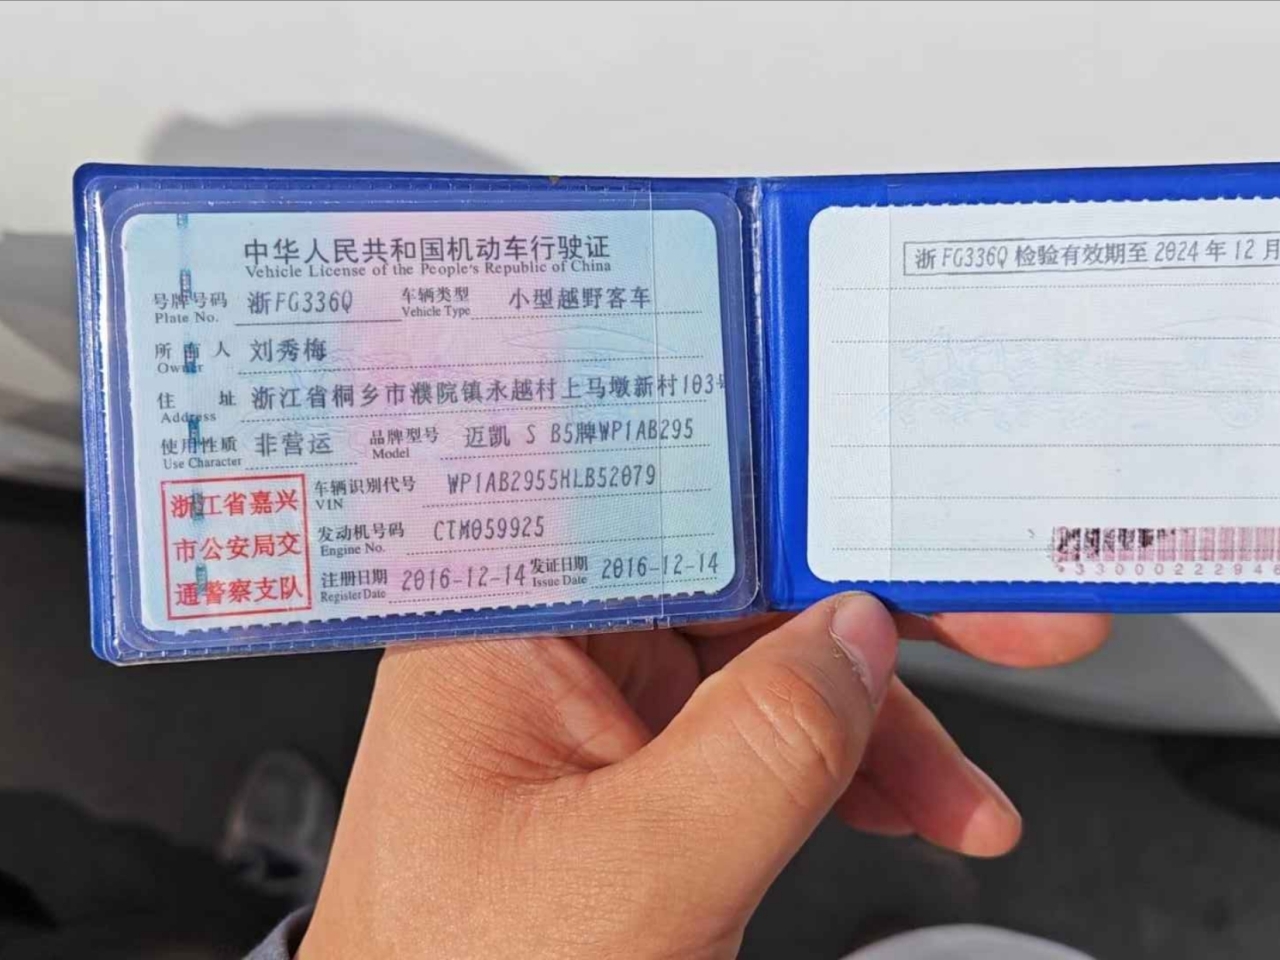 中华人民共和国机动车行驶证
Vehicle License of the People's Republic of China
号牌号码 浙FG336Q 车辆类型 小型越野客车
Plate No. Vehicle Type
所有人 刘秀梅
Owner
住址 浙江省桐乡市濮院镇永越村上马墩新村103号
Address
使用性质 非营运 品牌型号 迈凯 S B5牌WP1AB295
Use Character Model
浙江省嘉兴
市公安局交
通警察支队
车辆识别代号 WP1AB2955HLB52079
VIN
发动机号码 CTM059925
Engine No.
注册日期 2016-12-14 发证日期 2016-12-14
Register Date Issue Date
浙FG336Q 检验有效期至 2024年12月
*3300022294